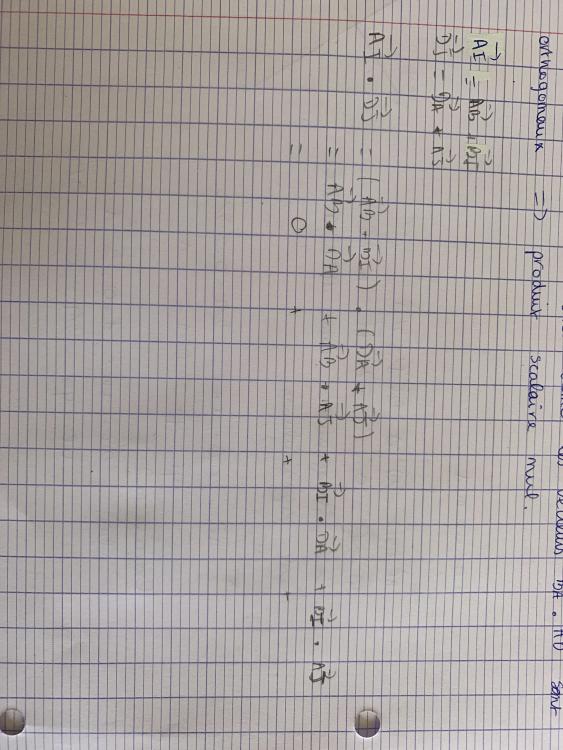 vecteurs BA . AD sont
orthogonaux => produit scalaire nul.
AI = AB + BI
DJ = DA + AJ
AI . DJ = (AB + BI) . (DA + AJ)
= AB . DA + AB . AJ + BI . DA + BI . AJ
= 0 + +